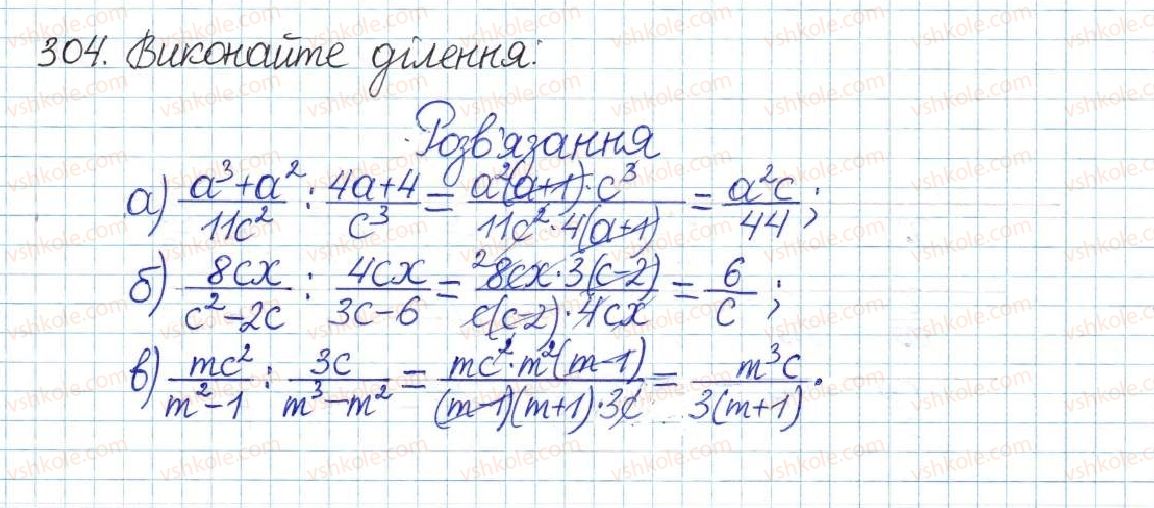 304. Виконайте ділення:
Розв'язання
а) (a³+a²)/(11c²) : (4a+4)/(c³) = (a²(a+1)·c³)/(11c²·4(a+1)) = (a²c)/(44);
б) (8cx)/(c²-2c) : (4cx)/(3c-6) = (²8cx·3(c-2))/(c(c-2)·4cx) = 6/c;
в) (mc²)/(m²-1) : (3c)/(m³-m²) = (mc²·m²(m-1))/((m-1)(m+1)·3c) = (m³c)/(3(m+1)).